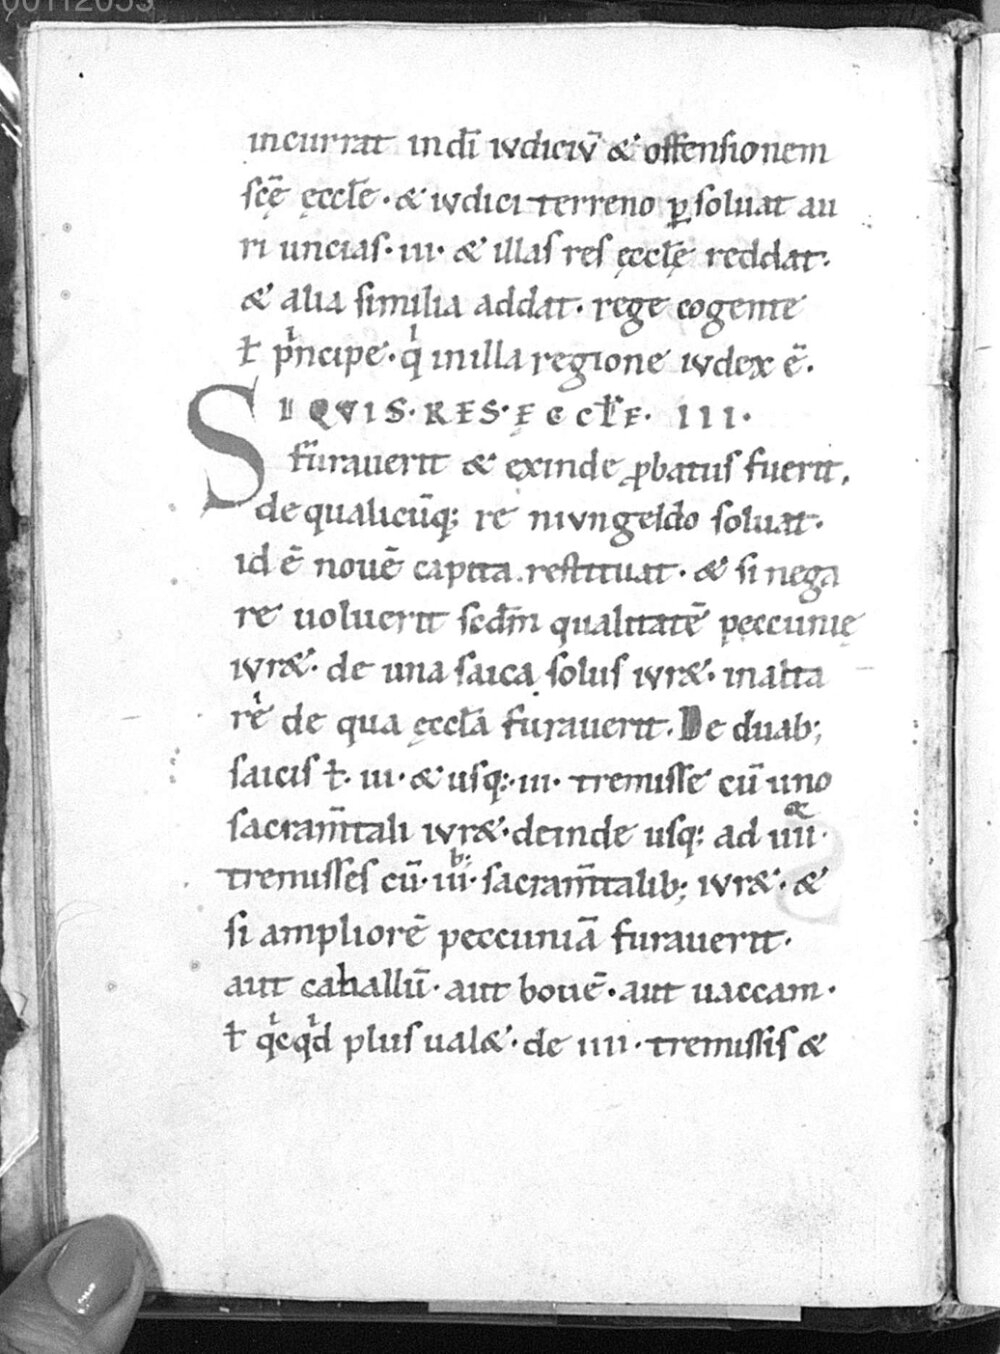 00112053
incurrat indi̅ iudiciu̅ & offensionem
sce̅ ęccle̅ · & iudici terreno p̲soluat au
ri uncias · iii · & illas res ęccle̅ę reddat·
& alia similia addat · rege cogente
ł pͥncipe · qͥ in illa regione iudex e̅ ·
SI QVIS · RES · ECCLE̅ · III ·
furauerit & exinde ꝓbatus fuerit,
de qualicu̅q; re niungeldo soluat·
id e̅ noue̅ capita restituat · & si nega
re uoluerit scdm̅ qualitate̅ pęccunię
iur& · de una saica solus iur& · in alta
reͥ de qua ęccla̅ furauerit · De duab;
saicis ł · iii · & usq; · iii · tremisse cu̅ uno
sacram̅tali iur& · deinde usq; ad iiii ·
tremisses cu̅ · iii · sacram̅talib; iur& · &
si ampliore̅ peccunia̅ furauerit ·
aut caballu̅ · aut boue̅ · aut uaccam ·
ł qͥcqͥd plus ual& · de iiii · tremissis &